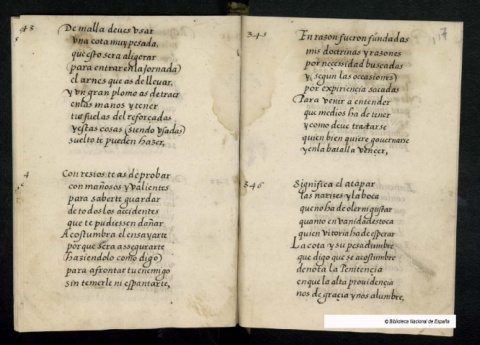 43
De malla deues vsar
vna cota muy pesada,
que esto sera aligerar
(para entrar en la jornada)
el arnes que as de lleuar,
y vn gran plomo as de traer
en las manos y tener
tus suelas del reforçadas
y estas cosas (siendo vsadas)
suelto te pueden haser,
4
Con testos te as de probar
con mañosos y valientes
para saberte guardar
de todos los accidentes
que te pudiessen dañar
Acostumbra el ensayarte
porque sera asegurarte
hasiendolo como digo
para afrontar tu enemigo
sin temerle ni espantarte,
345
117
En razon fueron fundadas
mis doctrinas y razones
por necesidad buscadas
y, segun las occasiones)
por expiriencia sacadas
Para venir a entender
que medios ha de tener
y como deue tratarse
quien bien quiere gouernarse
y en la batalla vencer,
346
Significa el atapar
las narises y la boca
que no ha de oler ni gustar
quanto en vanidades toca
quien vitoria ha de esperar
La cota y su pesadumbre
que digo que se acostumbre
denota la Penitencia
en que la alta prouidencia
nos de gracia y nos alumbre,
© Biblioteca Nacional de España